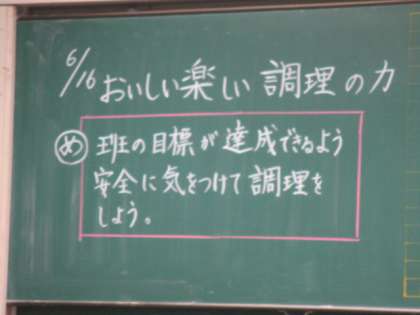 6/16 おいしい楽しい調理の力
め 班の目標が達成できるよう
安全に気をつけて調理を
しよう。